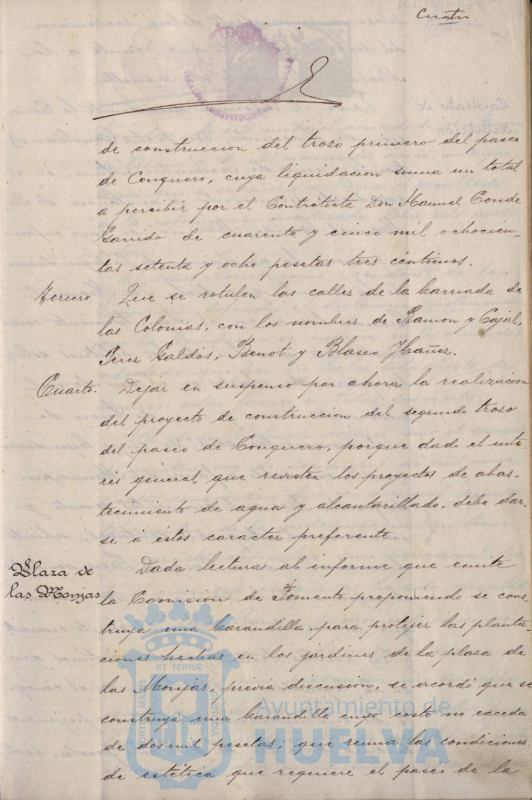 Cuatro
de construccion del trozo primero del paseo
de Conquero, cuya liquidacion suma un total
a percibir por el Contratista Don Manuel Conde
Garrido de cuarenta y cinco mil ochocien-
tas setenta y ocho pesetas tres céntimos.
Tercero Que se rotulen las calles de la barriada de
las Colonias, con los nombres de Ramon y Cajal,
Perez Galdós, Benot y Blasco Ybañez.
Cuarto. Dejar en suspenso por ahora la realizacion
del proyecto de construccion del segundo trozo
del paseo de Conquero, porque dado el inte-
rés general que revisten los proyectos de abas-
tecimiento de agua y alcantarillado, debe dar-
se á estos caracter preferente.
Plaza de
las Monjas
Dada lectura al informe que emite
la Comision de Fomento proponiendo se cons-
truya una barandilla para protejer las planta-
ciones hechas en los jardines de la plaza de
las Monjas, previa discusion, se acordó que se
construya una barandilla cuyo coste no exceda
de dos mil pesetas, que reuna las condiciones
de estética que requiere el paseo de la
ET TERRA
Ayuntamiento de
HUELVA